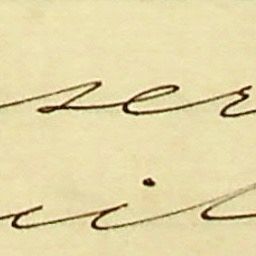 ser
il